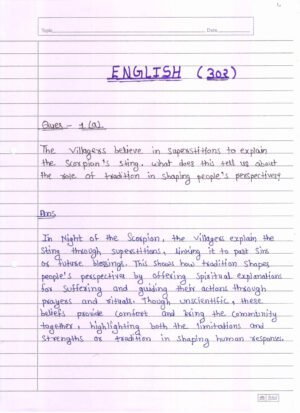 Topic
Date
ENGLISH (302)
Ques :- 1 (a).
The villagers believe in superstitions to explain
the Scorpion's sting. what does this tell us about
the role of tradition in shaping people's perspective?
Ans
In Night of the Scorpion, the villagers explain the
sting through superstitions, linking it to past sins
or future blessings. This shows how tradition shapes
people's perspective by offering spiritual explanations
for suffering and guiding their actions through
prayers and rituals. Though unscientific, these
beliefs provide comfort and bring the community
together, highlighting both the limitations and
strengths of tradition in shaping human response.